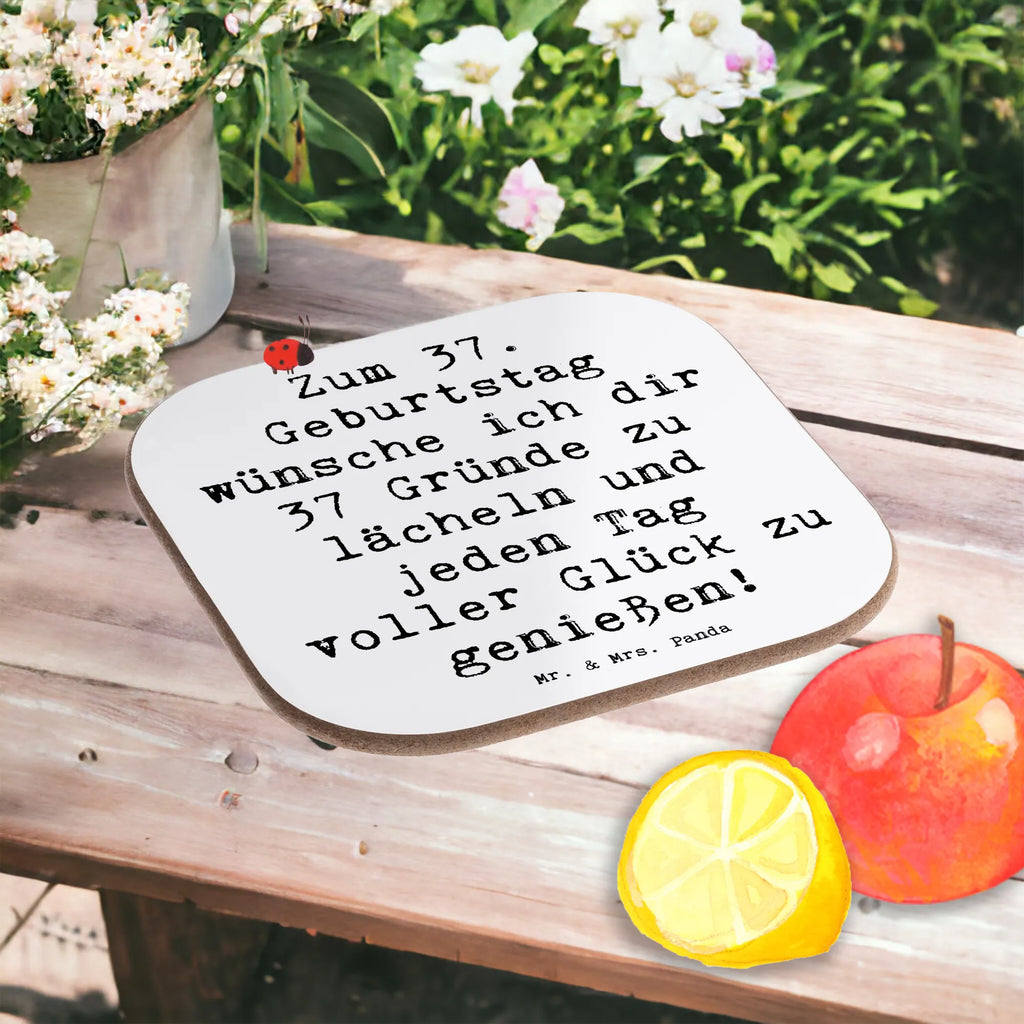 Zum 37.
Geburtstag
wünsche ich dir
37 Gründe zu
lächeln und
jeden Tag
voller Glück zu
genießen!
Mr. & Mrs. Panda